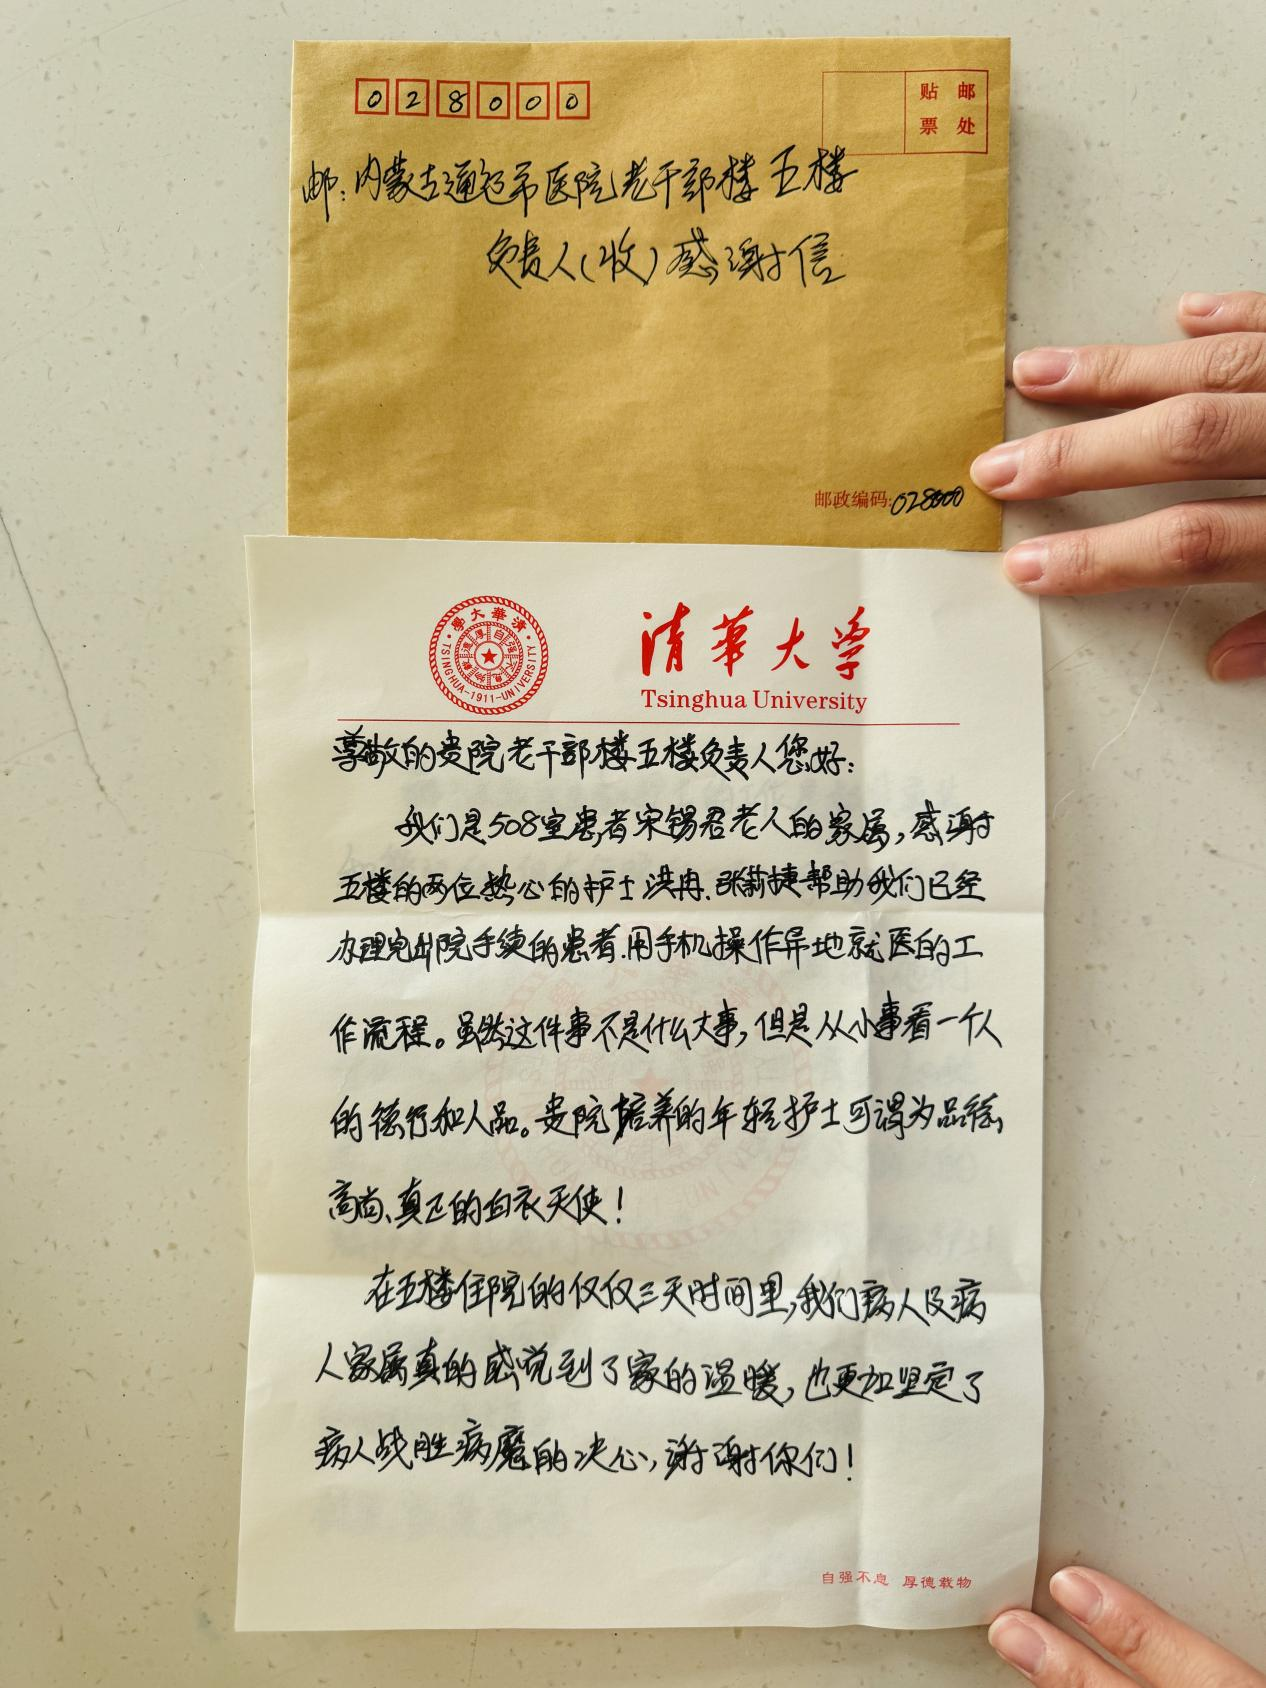 028000
贴邮
票处
邮:内蒙古通辽市医院老干部楼五楼
负责人(收)感谢信
邮政编码:028000
清華大學
TSINGHUA-1911-UNIVERSITY
自强不息
厚德載物
清華大学
Tsinghua University
尊敬的贵院老干部楼五楼负责人您好:
我们是508室患者宋锡君老人的家属,感谢
五楼的两位热心的护士洪冉.张薪捷帮助我们已经
办理完出院手续的患者.用手机操作异地就医的工
作流程。虽然这件事不是什么大事,但是从小事看一个人
的德行和人品。贵院培养的年轻护士可谓为品德
高尚、真正的白衣天使!
在五楼住院的仅仅三天时间里,我们病人及病
人家属真的感觉到了家的温暖,也更加坚定了
病人战胜病魔的决心,谢谢你们!
自强不息 厚德载物